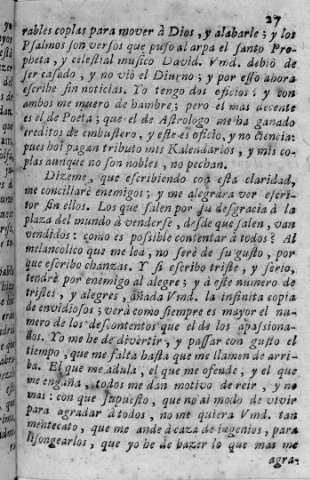 27
rables coplas para mover à Dios, y alabarle; y los
Psalmos son versos que puso al arpa el santo Pro-
pheta, y celestial musico David. Vmd. debiò de
ser casado, y no viò el Diurno; y por esso ahora
escribe sin noticias. Yo tengo dos oficios; y con
ambos me muero de hambre; pero el mas decente
es el de Poeta; que el de Astrologo me ha ganado
creditos de embustero, y este es oficio, y no ciencia:
pues hoi pagan tributo mis Kalendarios, y mis co-
plas aunque no son nobles, no pechan.
Dizeme, que escribiendo con esta claridad,
me conciliarè enemigos; y me alegràra ver escri-
tor sin ellos. Los que salen por su desgracia à la
plaza del mundo à venderse, desde que salen, van
vendidos: como es possible contentar à todos? Al
melancolico que me lea, no serè de su gusto, por
que escribo chanzas. Y si escribo triste, y serio,
tendrè por enemigo al alegre; y à este numero de
tristes, y alegres, añada Vmd. la infinita copia
de envidiosos; verà como siempre es mayor el nu-
mero de los descontentos que el de los apassiona-
dos. Yo me he de divertir, y passar con gusto el
tiempo, que me falta hasta que me llamen de arri-
ba. El que me adula, el que me ofende, y el que
me engaña, todos me dan motivo de reir, y no
mas: con que supuesto, que no ai modo de vivir
para agradar à todos, no me quiera Vmd. tan
mentecato, que me ande à caza de ingenios, para
lisongearlos, que yo he de hazer lo que mas me
agra-